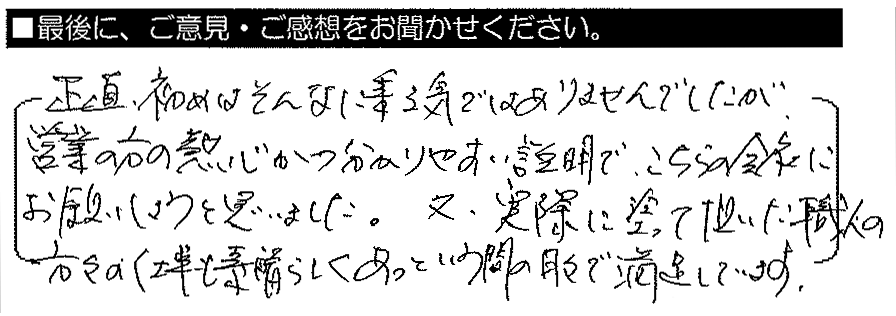 ■最後に、ご意見・ご感想をお聞かせください。
正直、初めはそんなに乗る気ではありませんでしたが、
営業の方の熱心かつ分かりやすい説明で、こちらの会社に
お願いしようと思いました。又、実際に塗って頂いた職人の
方々の仕事も素晴らしくあっという間の日々で満足しています。